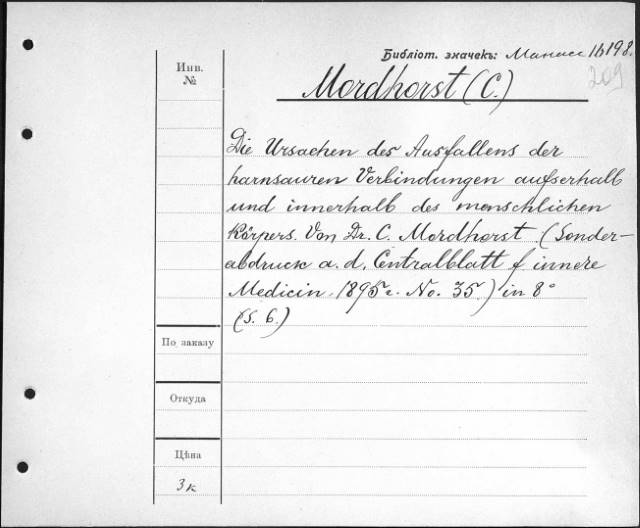 Библіот. значекъ: Манасс 1б198.
209
Инв.
№
Mordhorst (C.)
Die Ursachen des Ausfallens der
harnsauren Verbindungen aufserhalb
und innerhalb des menschlichen
Körpers. Von Dr. C. Mordhorst. (Sonder-
abdruck a. d. Centralblatt f. innere
Medicin. 1895 г. No. 35.) in 8°
(S. 6.)
По заказу
Откуда
Цѣна
3к